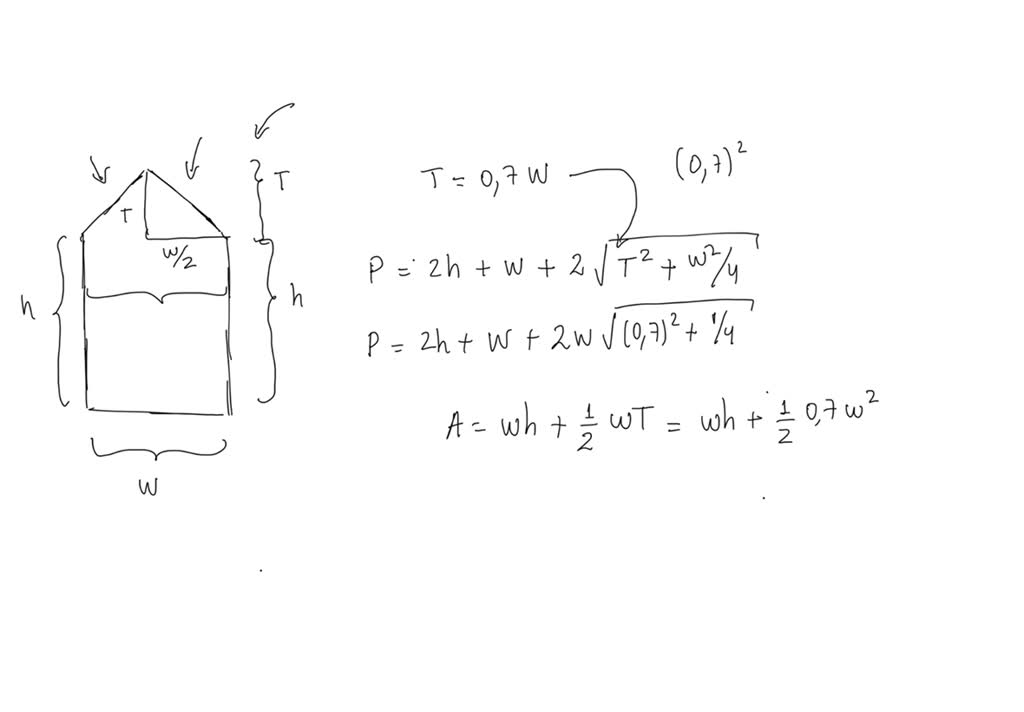 T
T
w/2
h
h
w
T = 0,7 w
(0,7)²
P = 2h + w + 2 √(T² + w²/4)
P = 2h + w + 2w √((0,7)² + 1/4)
A = wh + 1/2 wT = wh + 1/2 0,7 w²